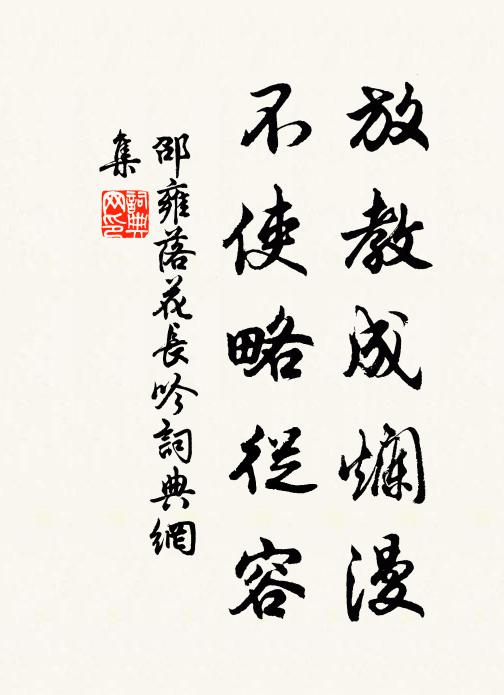 放教成爛漫
不使略從容
邵雍落花長吟詞典網
集
詞典
网印